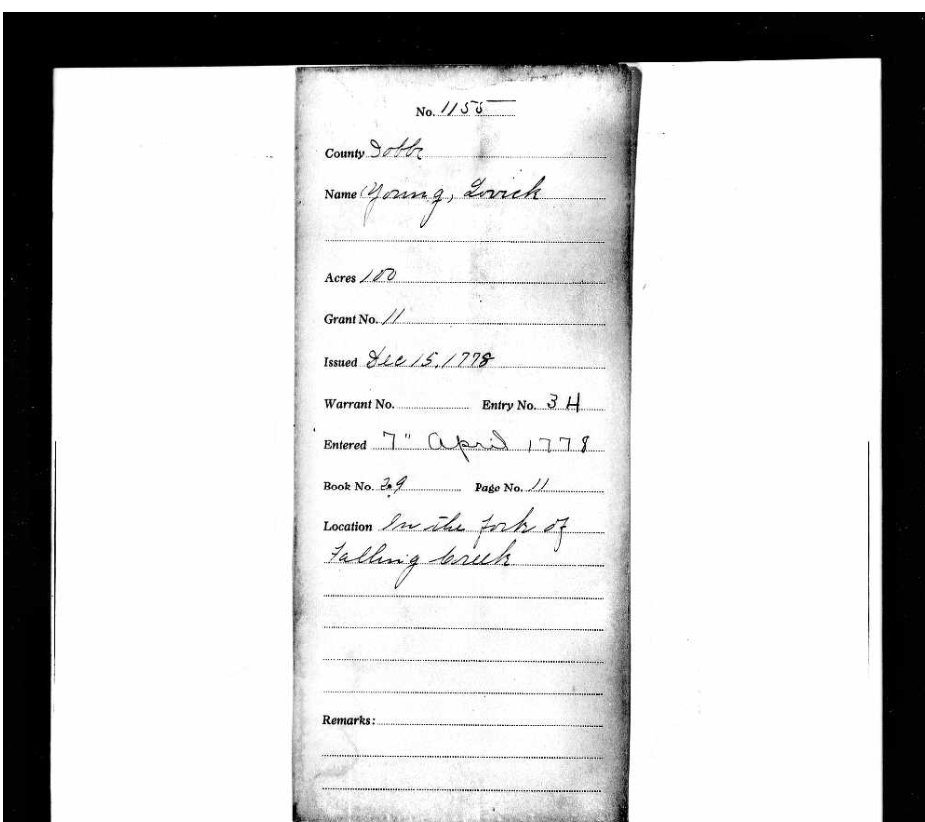 No. 1155
County Dobbs
Name Young, Lovick
Acres 100
Grant No. 11
Issued Dec 15, 1778
Warrant No. Entry No. 34
Entered 7" April 1778
Book No. 39 Page No. 11
Location In the fork of
Falling Creek
Remarks: